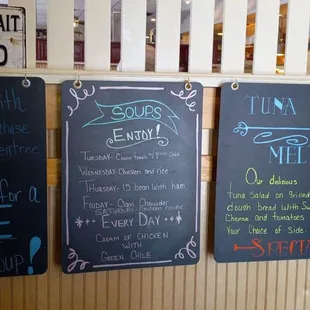 AIT
ith
chase
entree
for a
oup!
SOUPS
ENJOY!
Tuesday- Cream
Wednesday- Chicken and rice
Thursday- 15 bean with ham
Friday- Clam Chowder
Saturday- Chicken Noodle
Every Day
Cream of Chicken
with
Green Chile
TUNA
MEL
Our delicious
tuna Salad on grilled
dough bread with Sw
Cheese and tomatoes
Your Choice of Side
Specia